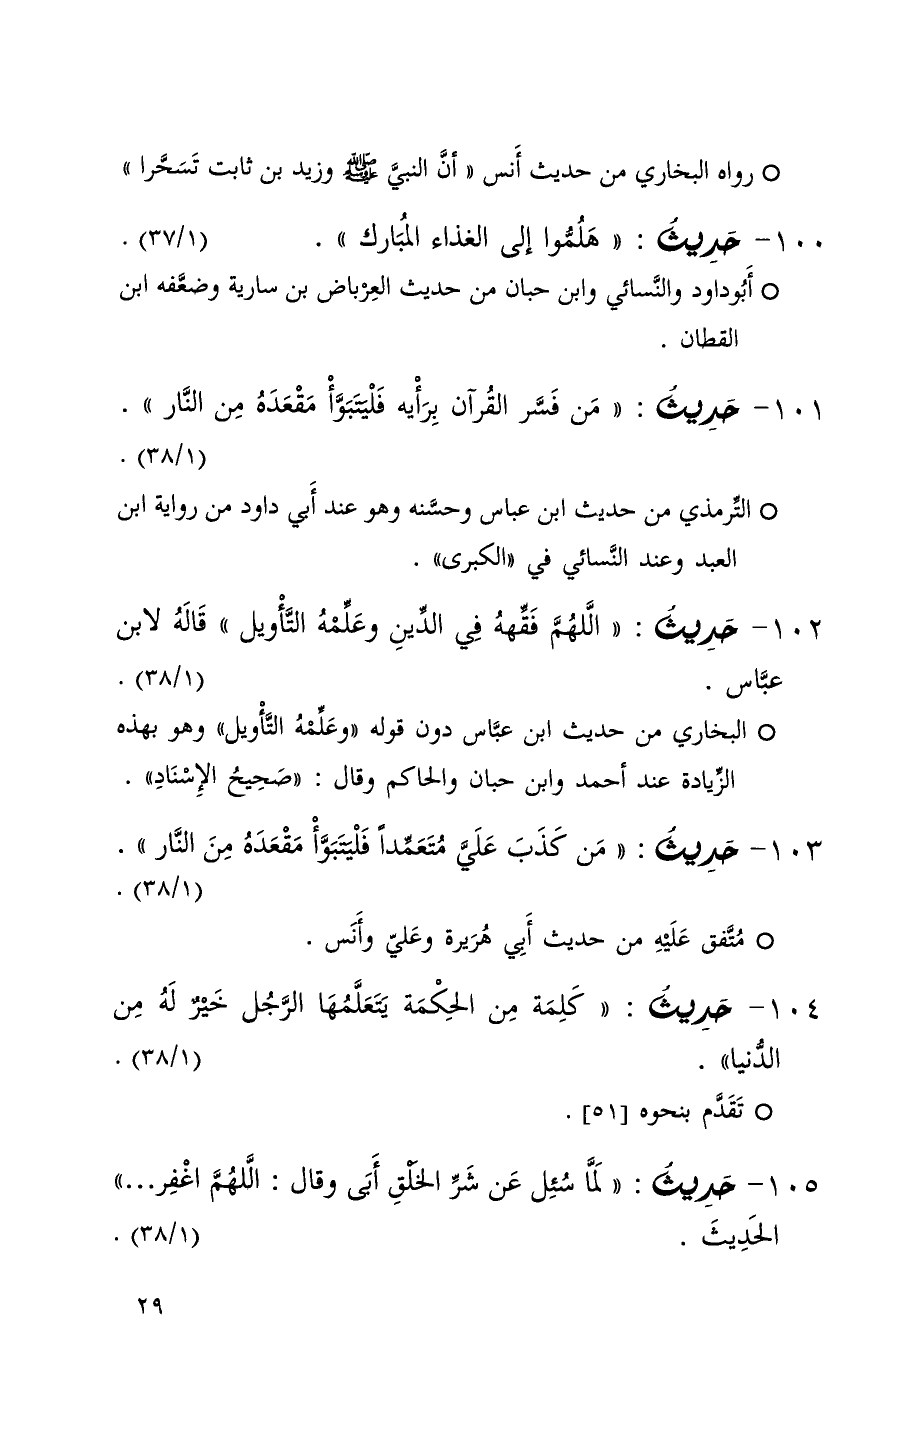 ○ رواه البخاري من حديث أَنس « أنَّ النبيَّ ﷺ وزيد بن ثابت تَسَحَّرا »
١٠٠- حَدِيثُ : « هَلُمُّوا إلى الغذاء المُبَارك » . (٣٧/١) .
○ أَبُوداود والنَّسائي وابن حبان من حديث العِرْباض بن سارية وضعَّفه ابن
القطان .
١٠١- حَدِيثُ : « مَن فَسَّر القُرآن بِرَأْيه فَلْيَتَبَوَّأْ مَقْعَدَهُ مِن النَّار » .
(٣٨/١) .
○ التِّرمذي من حديث ابن عباس وحسَّنه وهو عند أَبي داود من رواية ابن
العبد وعند النَّسائي في «الكبرى» .
١٠٢- حَدِيثُ : « الَّلهُمَّ فَقِّههُ فِي الدِّينِ وعَلِّمْهُ التَّأْويل » قَالَهُ لابن
عبَّاس . (٣٨/١) .
○ البخاري من حديث ابن عبَّاس دون قوله «وعَلِّمْهُ التَّأْويل» وهو بهذه
الزِّيادة عند أحمد وابن حبان والحاكم وقال : «صَحِيحُ الإِسْنَادِ» .
١٠٣- حَدِيثُ : « مَن كَذَبَ عَلَيَّ مُتَعَمِّداً فَلْيَتَبَوَّأْ مَقْعَدَهُ مِنَ النَّار » .
(٣٨/١) .
○ مُتَّفق عَلَيْهِ من حديث أَبِي هُرَيرة وعَليّ وأَنَس .
١٠٤- حَدِيثُ : « كَلِمَة مِن الحِكْمَة يَتَعَلَّمُهَا الرَّجُل خَيْرٌ لَهُ مِن
الدُّنيا» . (٣٨/١) .
○ تَقَدَّم بنحوه [٥١] .
١٠٥- حَدِيثُ : « لَمَّا سُئِل عَن شَرِّ الخَلْقِ أَبَى وقال : الَّلهُمَّ اغْفِر...»
الحَدِيثَ . (٣٨/١) .
٢٩